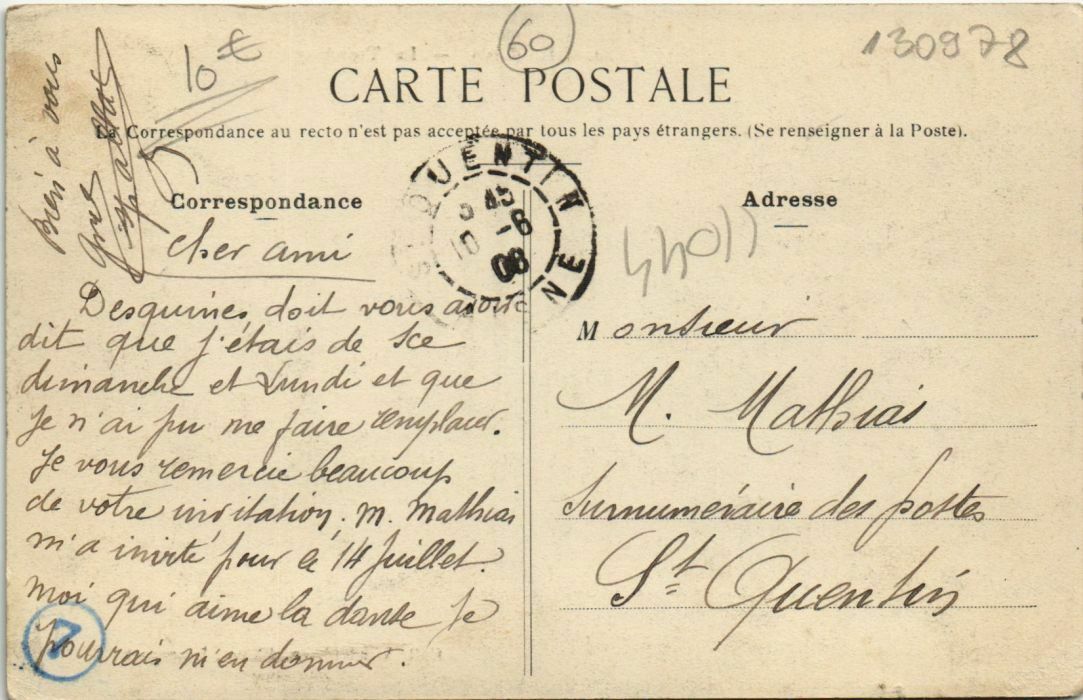 10 €
60
130978
CARTE POSTALE
La Correspondance au recto n'est pas acceptée par tous les pays étrangers. (Se renseigner à la Poste).
Bien à vous
Correspondance
Cher ami
Desquines doit vous avoir
dit que j'étais de sce
dimanche et Lundi et que
je n'ai pu me faire remplacer.
Je vous remercie beaucoup
de votre invitation. M. Mathias
m'a invité pour le 14 Juillet.
Moi qui aime la danse je
pourrais m'en donner.
QUENTIN
NE
-6
08
Adresse
Monsieur
M. Mathias
Surnuméraire des postes
St Quentin